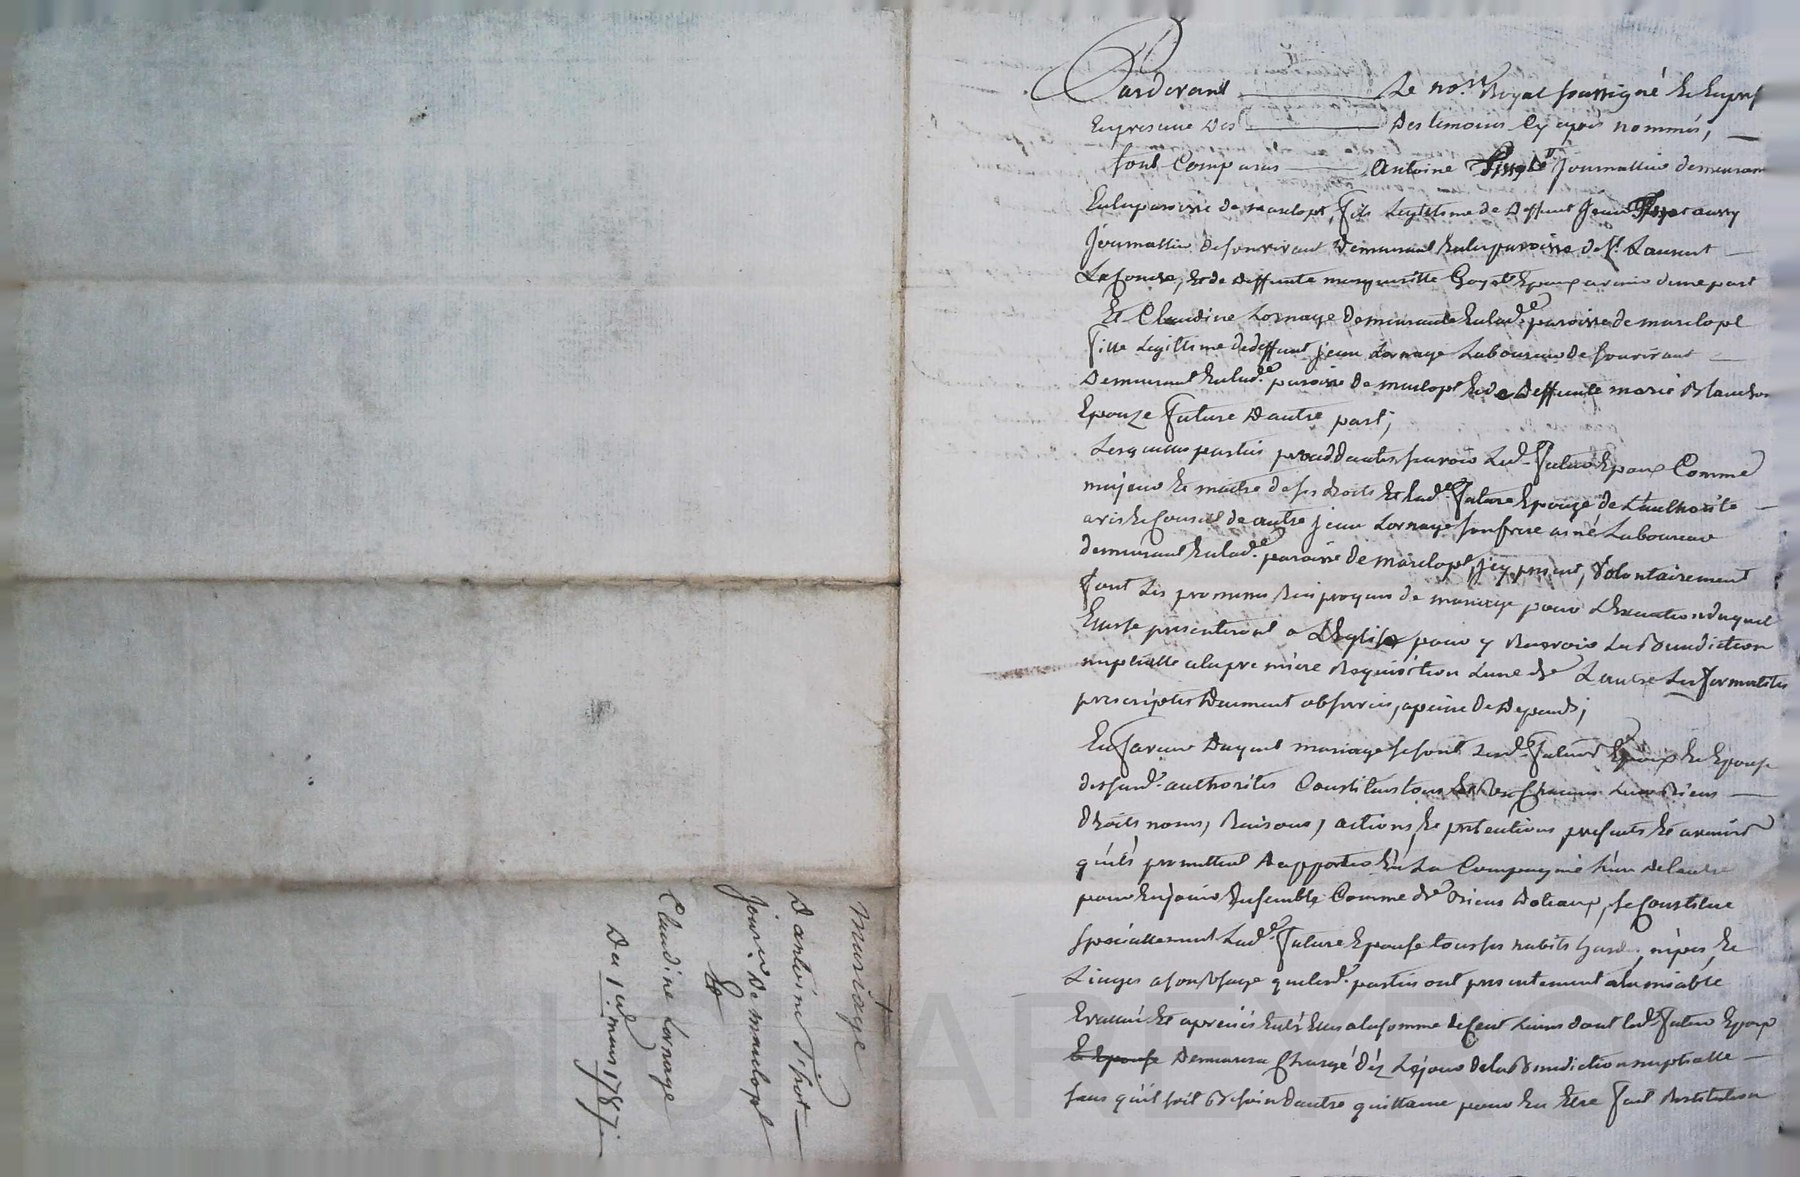 Pardevant Le no.re Royal soussigné Et En pres
En presence Des Des temoins Cy après nommés,
sont Comparus Antoine journallier demeurant
En la paroisse de marclopt, fils Legitime de deffunt Jean
journallier de son vivant demeurant En la paroisse de St. Laurent
La Conche, Et de deffunte margueritte Goyet Epoux avenir d'une part
Et Claudine Lornage demeurante En lad.e paroisse de marclopt
fille Legittime de deffunt jean Lornage Laboureur de son vivant
Demeurant En lad.e paroisse de marclopt Et de deffunte marie Blanchon
Epouze future D'autre part;
Lesquelles parties procedantes savoir Led. futur Epoux Comme
majeur Et maitre de ses droits Et lad.e future Epouze, de L'authorité
avis Et Conseil de autre jean Lornage son frere ainé Laboureur
demeurant En lad.e paroisse de marclopt, icy present, volontairement
font Les promesses Reciproques de mariage pour L'Execution duquel
Elles se presenteront a L'Eglise pour y Recevoir La Benediction
nuptialle a la premiere Requisition L'une de L'autre Les formalités
prescriptes Deument observées, a peine de Depends;
En faveur Duquel mariage se sont Lesd. futurs Epoux Et Epouse
desusd. authorités Constitués tous Et Un Chacuns Leurs Biens
Droits noms, Raisons, actions, Et pretentions presents Et avenirs
qu'ils promettent D'apporter En La Compagnie L'un de L'autre
pour En jouir Ensemble Comme de Biens Dotaux, se Constitue
specialement Lad.e future Epouse tous ses habits hardes, nipes, Et
Linges a son Usage que lesd. parties ont presentement a L'amiable
Evalués Et apreciés Entr'Elles a la somme de Cent Livres dont led. futur Epoux
Et Epouse Demeurera Chargé dés Le jour de la Benediction nuptialle
sans qu'il soit Besoin d'autre quittance pour En Etre fait Restitution
Mariage
D'antoine Tissot
jour.er De marclopt
Et
Claudine Lornage
Du 1er mars 1787